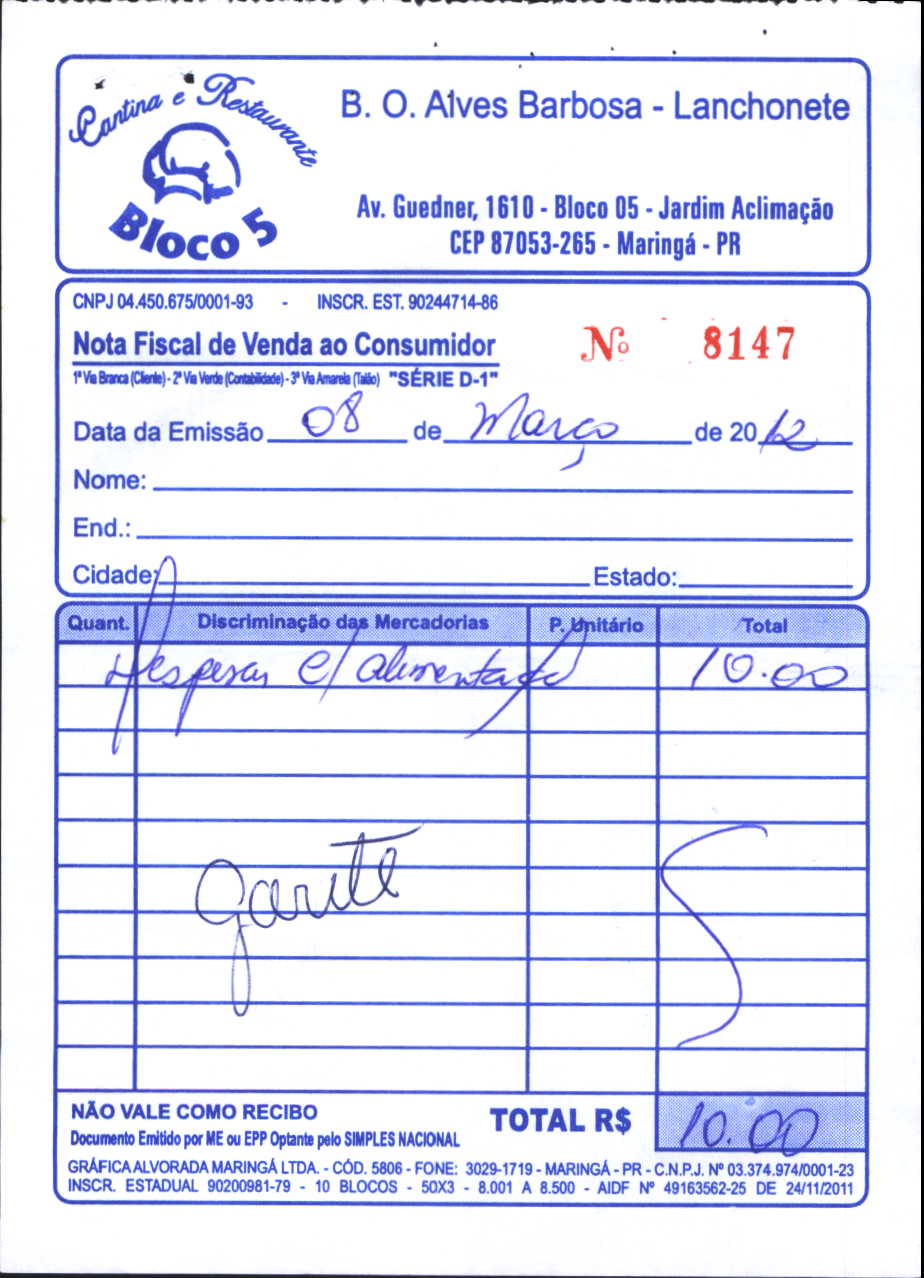 Cantina e Restaurante
Bloco 5
B. O. Alves Barbosa - Lanchonete
Av. Guedner, 1610 - Bloco 05 - Jardim Aclimação
CEP 87053-265 - Maringá - PR
CNPJ 04.450.675/0001-93 - INSCR. EST. 90244714-86
Nota Fiscal de Venda ao Consumidor
Nº 8147
1ª Via Branca (Cliente) - 2ª Via Verde (Contabilidade) - 3ª Via Amarela (Talão) "SÉRIE D-1"
Data da Emissão 08 de Março de 2012
Nome:
End.:
Cidade: Estado:
Quant. Discriminação das Mercadorias P. Unitário Total
Despesas c/ alimentação 10.00
NÃO VALE COMO RECIBO
Documento Emitido por ME ou EPP Optante pelo SIMPLES NACIONAL
TOTAL R$ 10.00
GRÁFICA ALVORADA MARINGÁ LTDA. - CÓD. 5806 - FONE: 3029-1719 - MARINGÁ - PR - C.N.P.J. Nº 03.374.974/0001-23
INSCR. ESTADUAL 90200981-79 - 10 BLOCOS - 50X3 - 8.001 A 8.500 - AIDF Nº 49163562-25 DE 24/11/2011